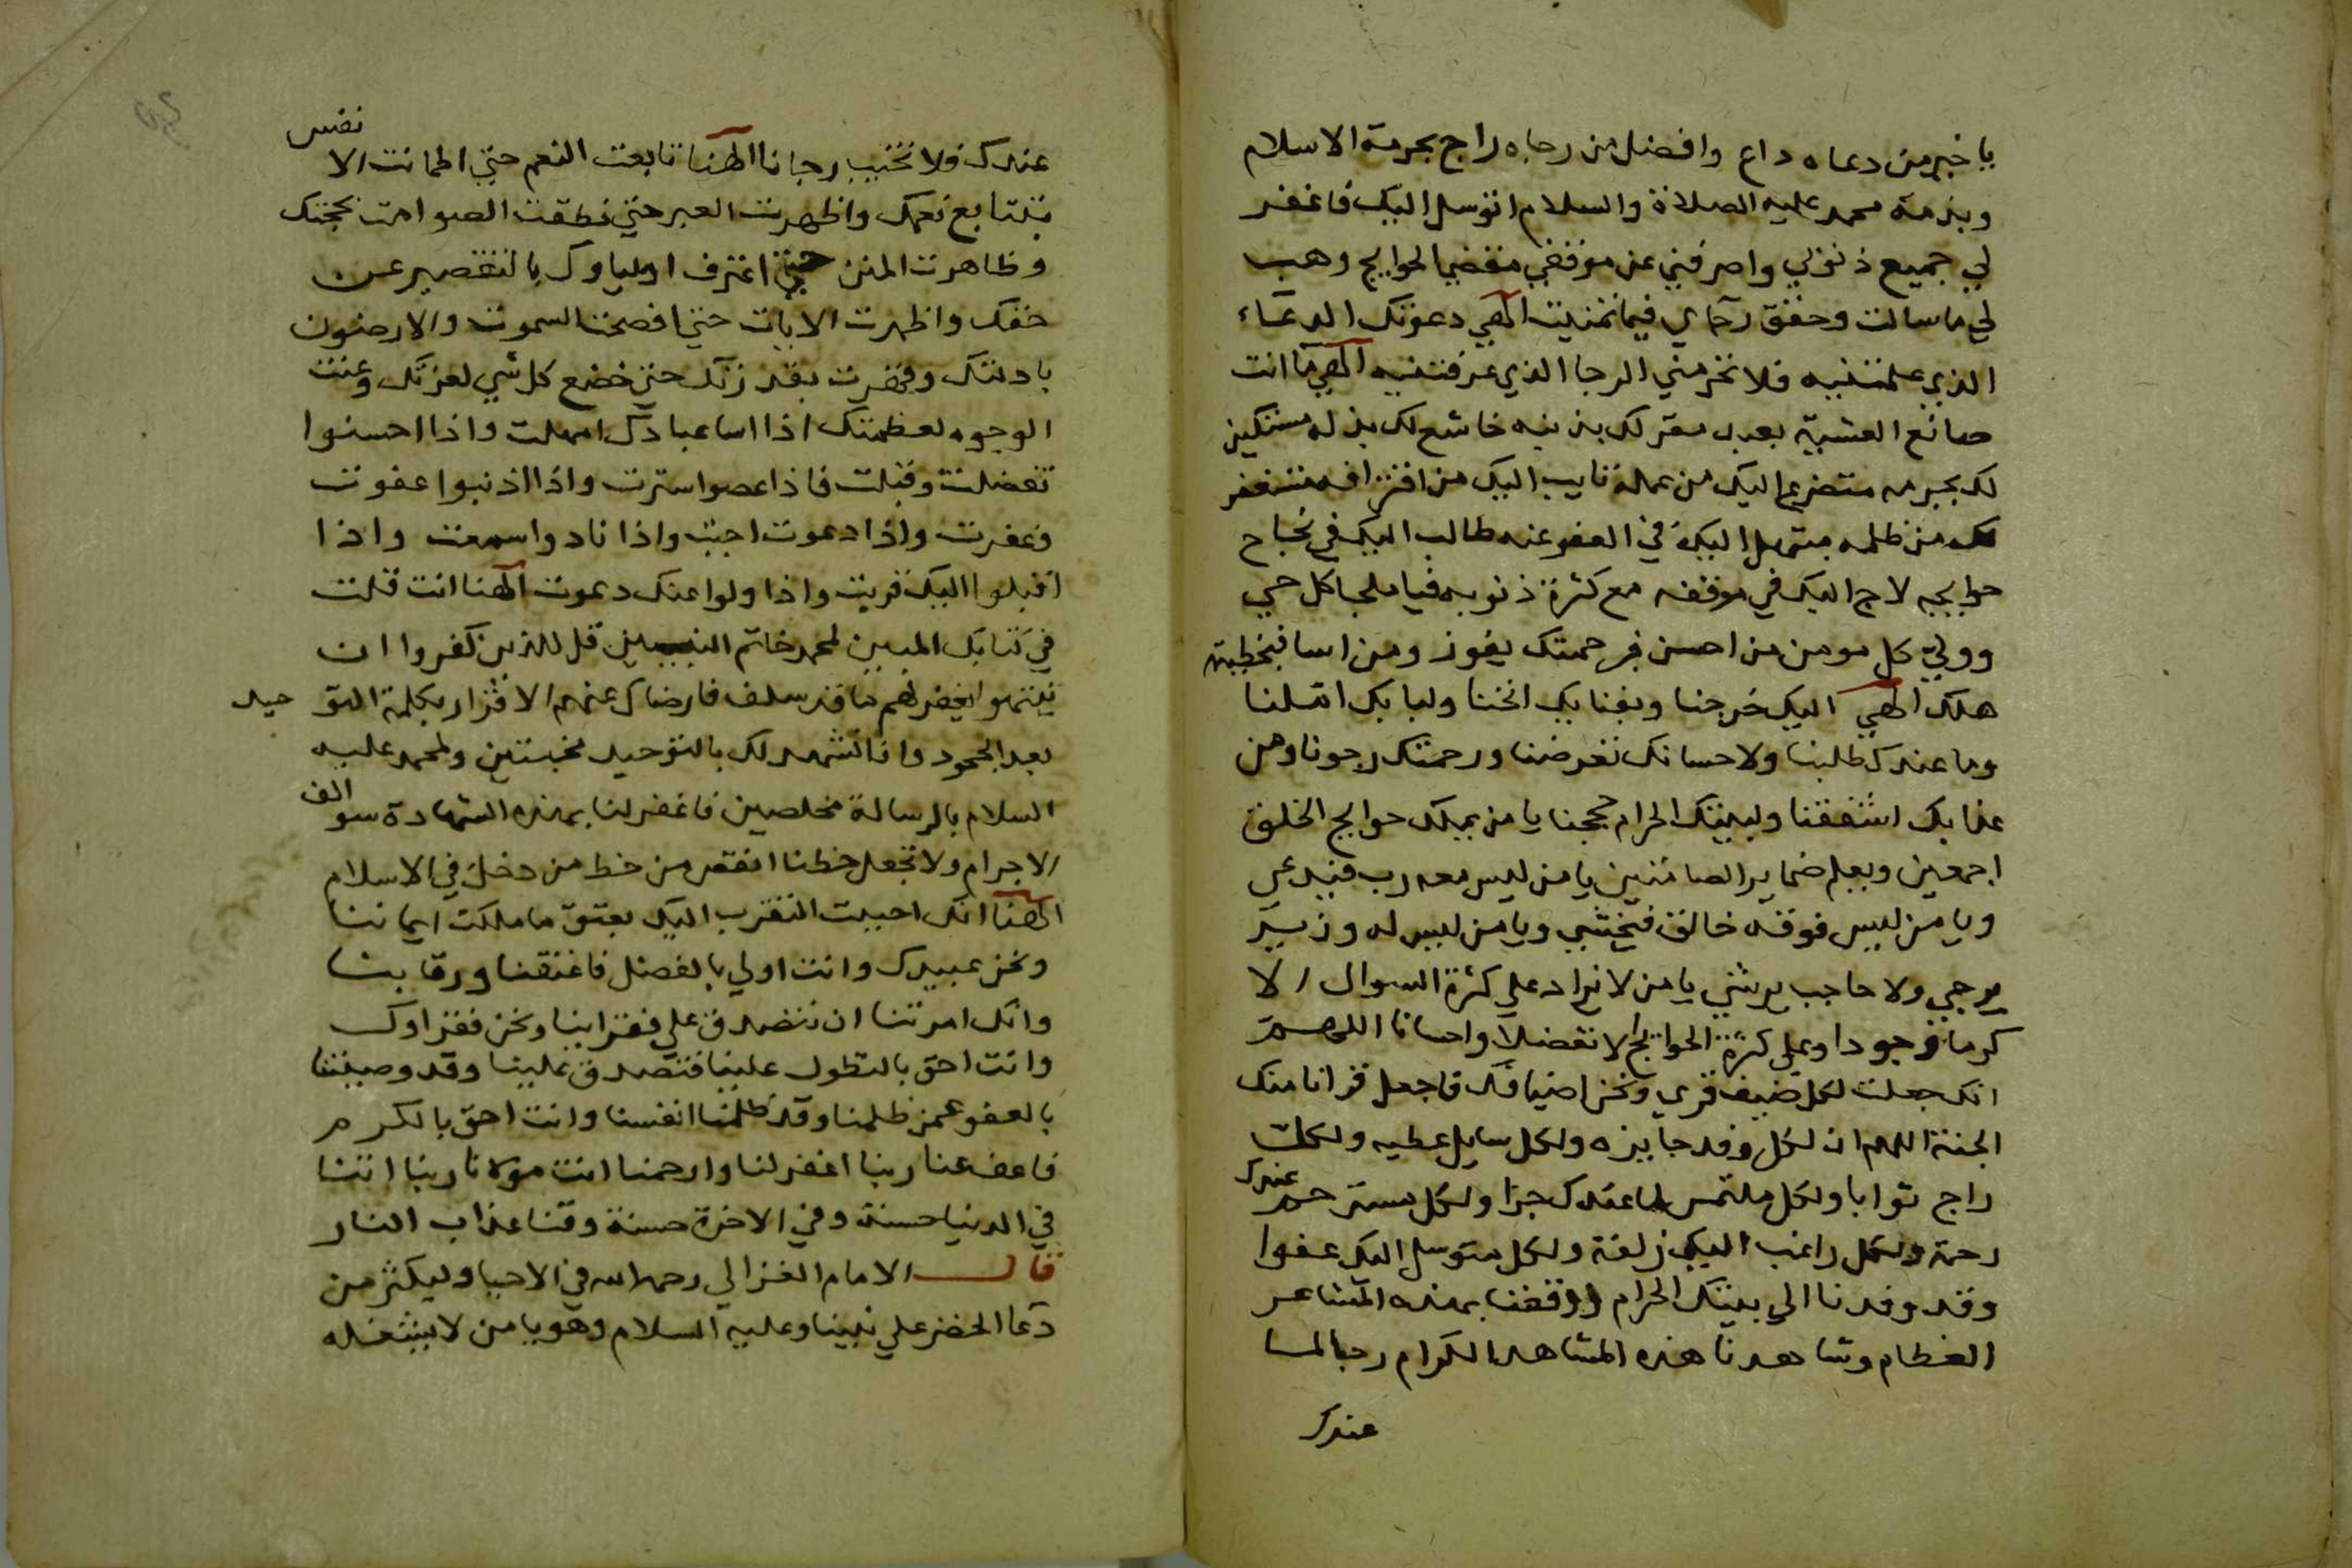 يا خير من دعاه داع وافضل من رجاه راج بحرمة الاسلام
وبذمة محمد عليه الصلاة والسلام اتوسل اليك فاغفر
لي جميع ذنوبي واصرفني عن موقفي مقضي الحوايج وهب
لي ما سالت وحقق رجاي فيما تمنيت الهي دعوتك الدعاء
الذي علمتنيه فلا تحرمني الرجا الذي عرفتنيه الهي ما انت
صانع العشية بعبد مقر لك بذنبه خاشع لك بذله مستكين
لك بجرمه متضرع اليك من عمله تايب اليك من اقترافه مستغفر
لك من ظلمه مبتهل اليك في العفو عنه طالب اليك في نجاح
حوايجه لاج اليك في موقفه مع كثرة ذنوبه فيا ملجا كل حي
وولي كل مومن من احسن فبرحمتك يفوز ومن اسا فبخطيته
هلك الهي اليك خرجنا وبفنايك انخنا ولبابك املنا
وما عندك طلبنا ولاحسانك تعرضنا ورحمتك رجونا ومن
عذابك اشفقنا ولبيتك الحرام حججنا يا من يملك حوايج الخلق
اجمعين ويعلم ضماير الصامتين يا من ليس معه رب فيدعي
ويا من ليس فوقه خالق فيخشي ويا من ليس له وزير
يرجي ولا حاجب يرشي يا من لا يزاد علي كثرة السوال الا
كرما وجودا وعلي كثرة الحوايج الا تفضلا واحسانا اللهم
انك جعلت لكل ضيف قري ونحن اضيافك فاجعل قرانا منك
الجنة اللهم ان لكل وفد جايزه ولكل سايل عطيه ولكل
راج ثوابا ولكل ملتمس لما عندك جزا ولكل مسترحم عندك
رحمة ولكل راغب اليك زلفة ولكل متوسل اليك عفوا
وقد وفدنا الي بيتك الحرام ووقفنا بهذه المشاعر
العظام وشاهدنا هذه المشاهد الكرام رجا لما
عندك
عندك فلا تخيب رجانا الهنا تابعت النعم حتي اطمانت الانفس
بتتابع نعمك واظهرت العبر حتي نطقت الصوامت بحجتك
وظاهرت المنن حتي اعترف اولياوك بالتقصير عن
حقك واظهرت الايات حتي افصحت السموت والارضون
بادلتك وقهرت بقدرتك حتي خضع كل شي لعزتك وعنت
الوجوه لعظمتك اذا اسا عبادك امهلت واذا احسنوا
تفضلت وقبلت فاذا عصوا سترت واذا اذنبوا عفوت
وغفرت واذا دعوت اجبت واذا نادوا سمعت واذا
اقبلوا اليك قربت واذا ولوا عنك دعوت الهنا انت قلت
في كتابك المبين لمحمد خاتم النبيين قل للذين كفروا ان
ينتهوا يغفر لهم ما قد سلف فارضاك عنهم الاقرار بكلمة التوحيد
بعد الجحود وانا نشهد لك بالتوحيد مخبتين ولمحمد عليه
السلام بالرسالة مخلصين فاغفر لنا بهذه الشهادة سوالف
الاجرام ولا تجعل حظنا انقص من حظ من دخل في الاسلام
الهنا انك احببت التقرب اليك بعتق ما ملكت ايماننا
ونحن عبيدك وانت اولي بالفضل فاعتقنا ورقابنا
وانك امرتنا ان نتصدق علي فقراينا ونحن فقراوك
وانت احق بالتطول علينا فتصدق علينا وقد وصيتنا
بالعفو عمن ظلمنا وقد ظلمنا انفسنا وانت احق بالكرم
فاعف عنا ربنا اغفر لنا وارحمنا انت مولانا ربنا اتنا
في الدنيا حسنة وفي الاخرة حسنة وقنا عذاب النار
قال الامام الغزالي رحمه الله في الاحيا وليكثر من
دعا الخضر علي نبينا وعليه السلام وهو يا من لا يشغله